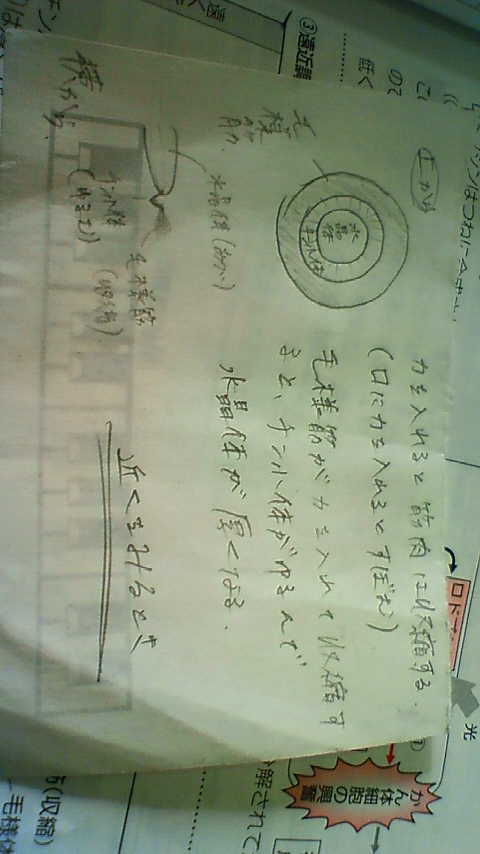 上から
毛様筋
水晶体
チン小体
力を入れると筋肉は収縮する.
(口に力を入れるとすぼむ)
毛様筋が力を入れて収縮す
ると、チン小体がゆるんで
水晶体が厚くなる.
近くをみるとき
横から.
水晶体(厚い)
毛様筋
(収縮)
チン小体
(ゆるむ)
③遠近調
遠く
低く
光
かん体細胞の興奮
分解されて
(収縮)
毛様体